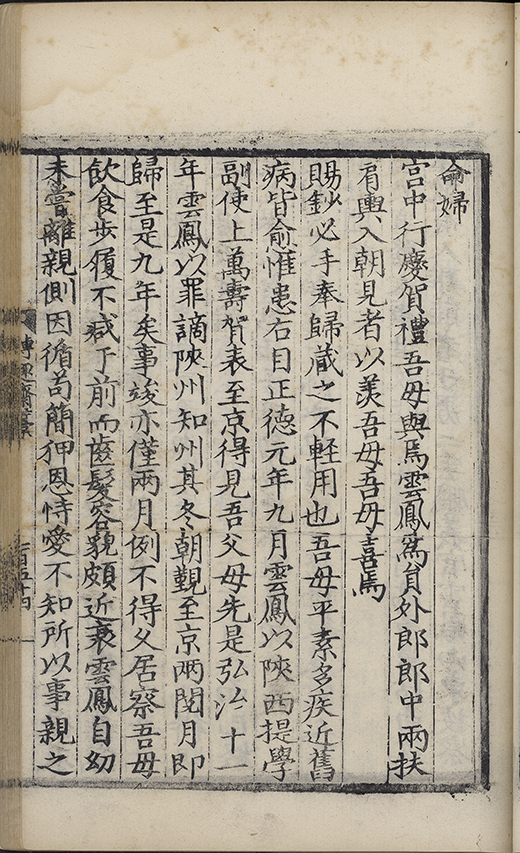 命婦
宫中行慶賀禮吾母與焉雲鳳爲貟外郎郎中兩扶
肩輿入朝見者以羡吾母吾母喜焉
賜鈔必手奉歸藏之不輕用也吾母平素多疾近舊
病皆愈惟患右目正德元年九月雲鳳以陜西提學
副使上萬壽賀表至京得見吾父母先是弘治十一
年雲鳳以罪謫陜州知州其冬朝覲至京兩閱月即
歸至是九年矣事竣亦僅兩月例不得久居察吾母
飲食步履不减于前而齒髮容貌頗近衰雲鳳自幼
未嘗離親側因循苟簡狎恩恃愛不知所以事親之
博趣齋藁
一百五十四